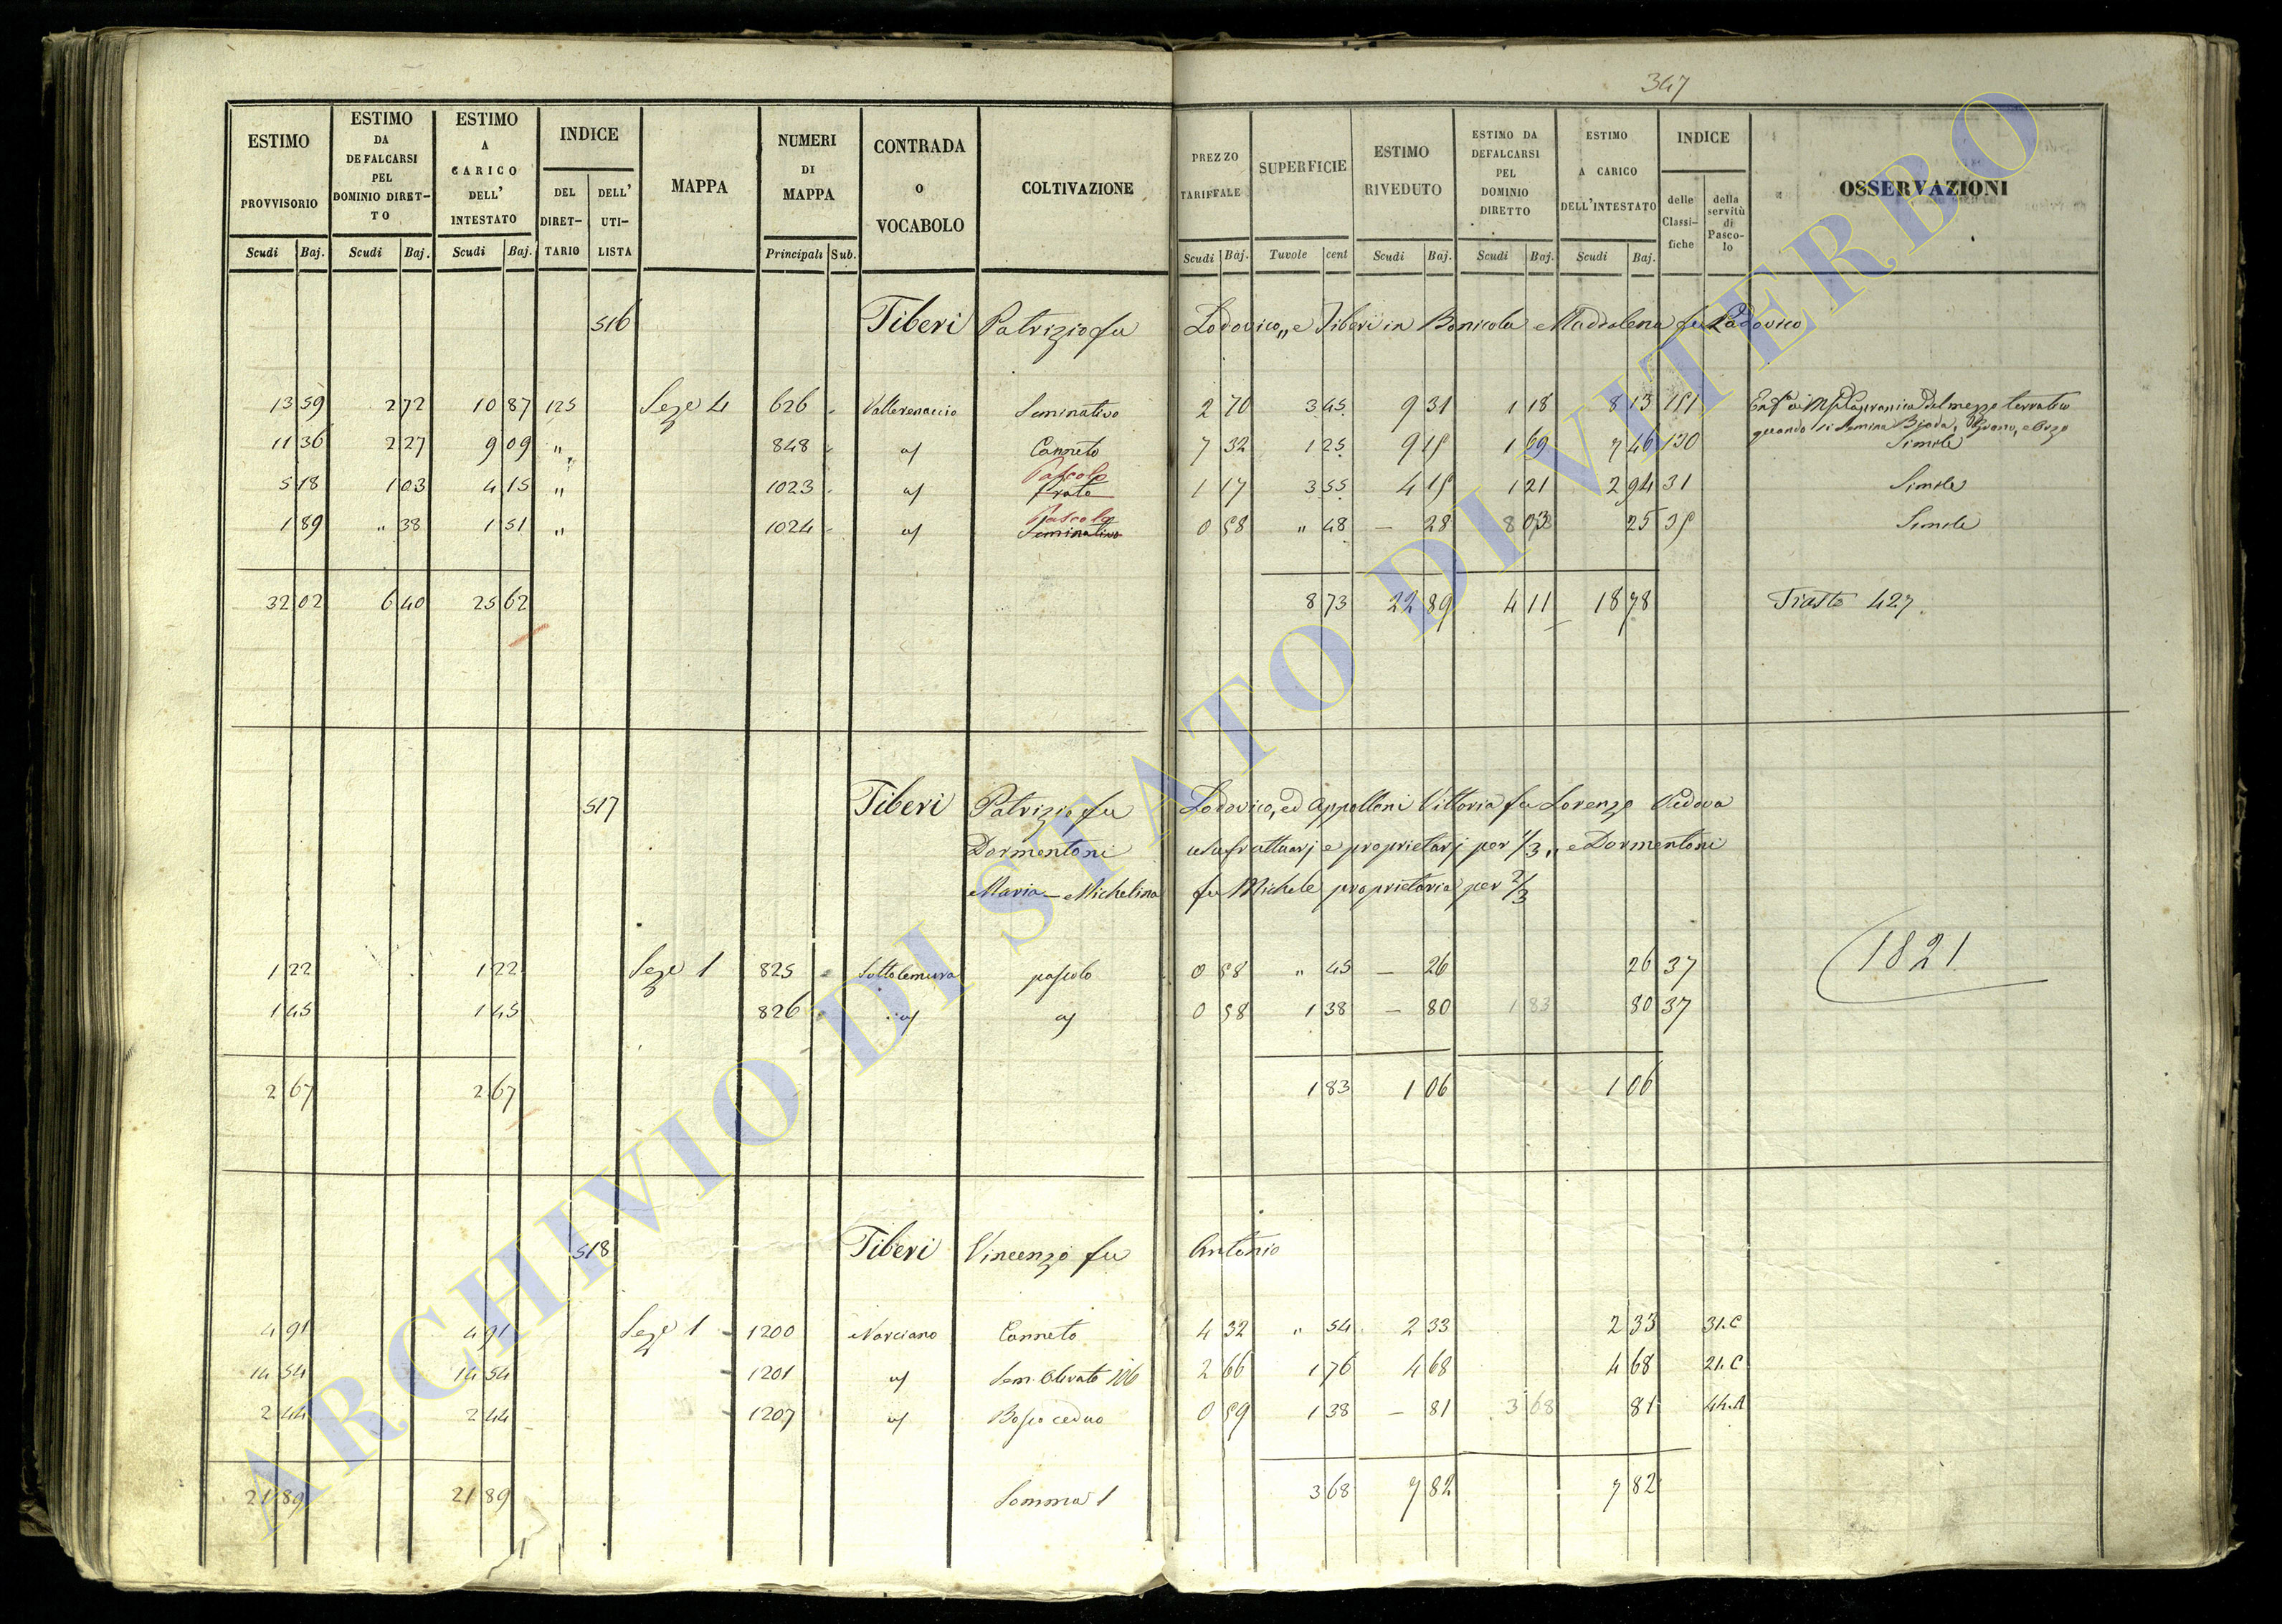 347
ESTIMO PROVVISORIO Scudi Baj. ESTIMO DA DEFALCARSI PEL DOMINIO DIRETTO Scudi Baj. ESTIMO A CARICO DELL' INTESTATO Scudi Baj. INDICE DEL DIRETTARIO DELL' UTILISTA MAPPA NUMERI DI MAPPA Principali Sub. CONTRADA O VOCABOLO COLTIVAZIONE PREZZO TARIFFALE Scudi Baj. SUPERFICIE Tavole cent ESTIMO RIVEDUTO Scudi Baj. ESTIMO DA DEFALCARSI PEL DOMINIO DIRETTO Scudi Baj. ESTIMO A CARICO DELL'INTESTATO Scudi Baj. INDICE delle Classifiche della servitù di Pascolo OSSERVAZIONI
516 Tiberi Patrizio fu Lodovico,, e Tiberi in Bonicola Maddalena fu Lodovico
13 59 2 72 10 87 125 Seze 4 626 Vallerenaccio Seminativo 2 70 3 45 9 31 1 18 8 13 151 del mezzo terratico
quando si Semina Biada, Grano, e Orzo
11 36 2 27 9 09 " 848 Canneto 7 32 1 25 9 15 1 69 7 46 130 Simile
5 18 1 03 4 15 " 1023 Pascolo Prato 1 17 3 55 4 15 1 21 2 94 31 Simile
1 89 " 38 1 51 " 1024 Pascolo Seminativo 0 58 " 48 — 28 03 25 35 Simile
32 02 6 40 25 62 8 73 22 89 4 11 18 78 Tiasto 427.
517 Tiberi Patrizio fu Lodovico, ed Appolloni Vittoria fu Lorenzo Vedova
Dormentoni usufruttuarj e proprietarj per 1/3,, e Dormentoni
Maria Michelina fu Michele proprietaria per 2/3
1 22 1 22 Seze 1 825 Sottolemura pascolo 0 58 " 45 — 26 26 37 1821
1 45 1 45 826 0 58 1 38 — 80 1 83 80 37
2 67 2 67 1 83 1 06 1 06
518 Tiberi Vincenzo fu Antonio
4 91 4 91 Seze 1 1200 Narciano Canneto 4 32 " 54 2 33 2 33 31.C
14 54 14 54 1201 Sem. Olivato 106 2 66 1 76 4 68 4 68 21.C
2 44 2 44 1207 Bosco ceduo 0 59 1 38 — 81 3 68 81 44.A
21 89 21 89 Somma 1 3 68 7 82 7 82
ARCHIVIO DI STATO DI VITERBO